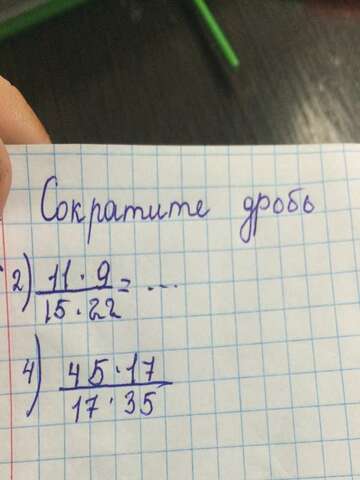 Сократите дробь
2) 11 · 9
15 · 22 = ...
4) 45 · 17
17 · 35